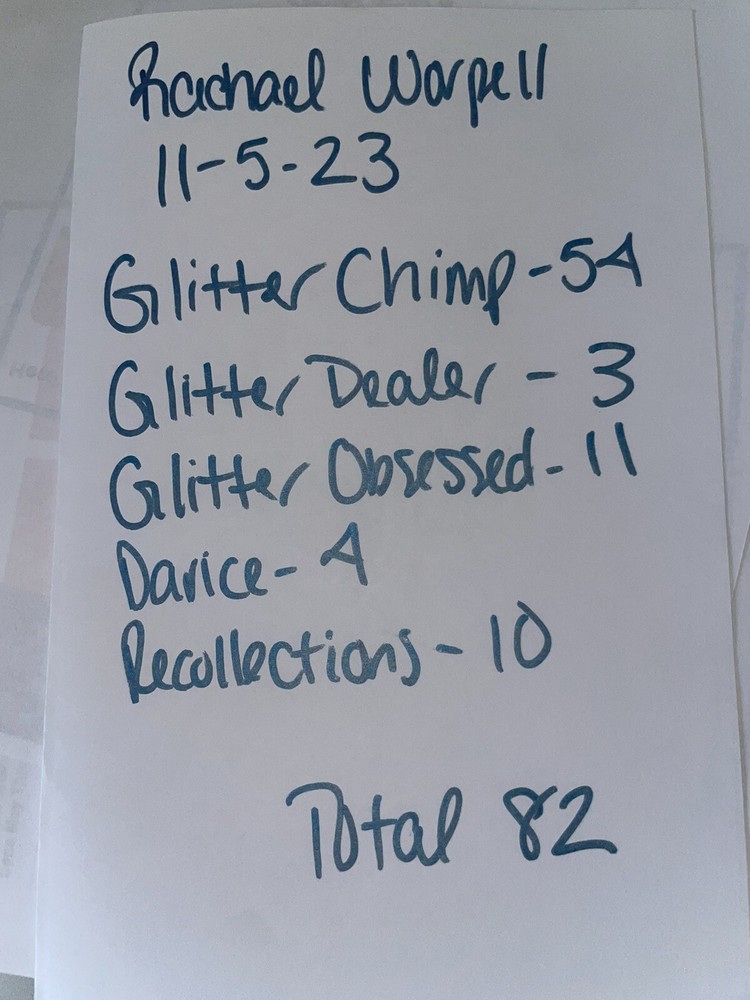 Rachael Worpell
11-5-23
Glitter Chimp - 54
Glitter Dealer - 3
Glitter Obsessed - 11
Darice - 4
Recollections - 10
Total 82